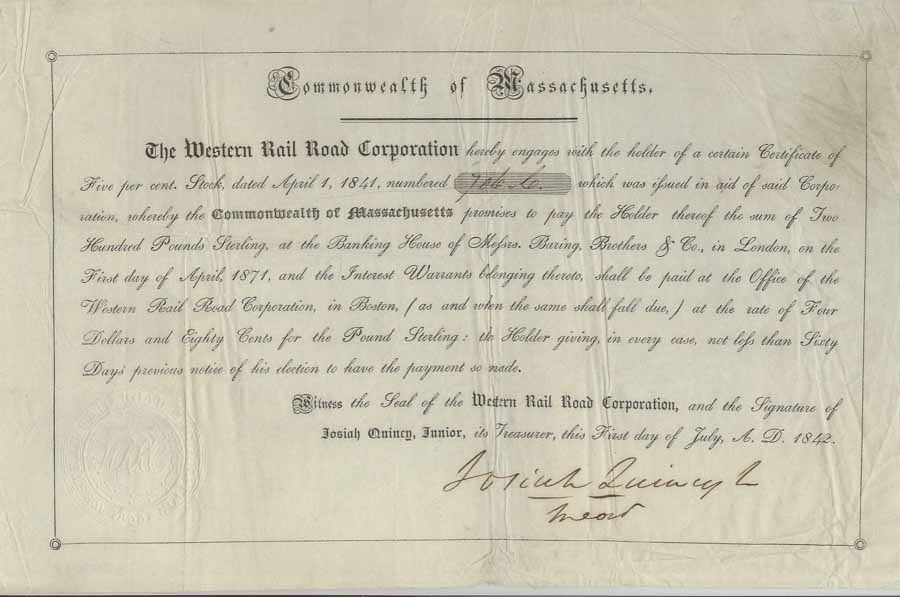 Commonwealth of Massachusetts.
The Western Rail Road Corporation hereby engages with the holder of a certain Certificate of
Five per cent. Stock, dated April 1, 1841, numbered which was issued in aid of said Corpo-
ration, whereby the Commonwealth of Massachusetts promises to pay the Holder thereof the sum of Two
Hundred Pounds Sterling, at the Banking House of Messrs. Baring, Brothers & Co., in London, on the
First day of April, 1871, and the Interest Warrants belonging thereto, shall be paid at the Office of the
Western Rail Road Corporation, in Boston, (as and when the same shall fall due,) at the rate of Four
Dollars and Eighty Cents for the Pound Sterling: the Holder giving, in every case, not less than Sixty
Days' previous notice of his election to have the payment so made.
Witness the Seal of the Western Rail Road Corporation, and the Signature of
Josiah Quincy, Junior, its Treasurer, this First day of July, A. D. 1842.
Josiah Quincy Jr